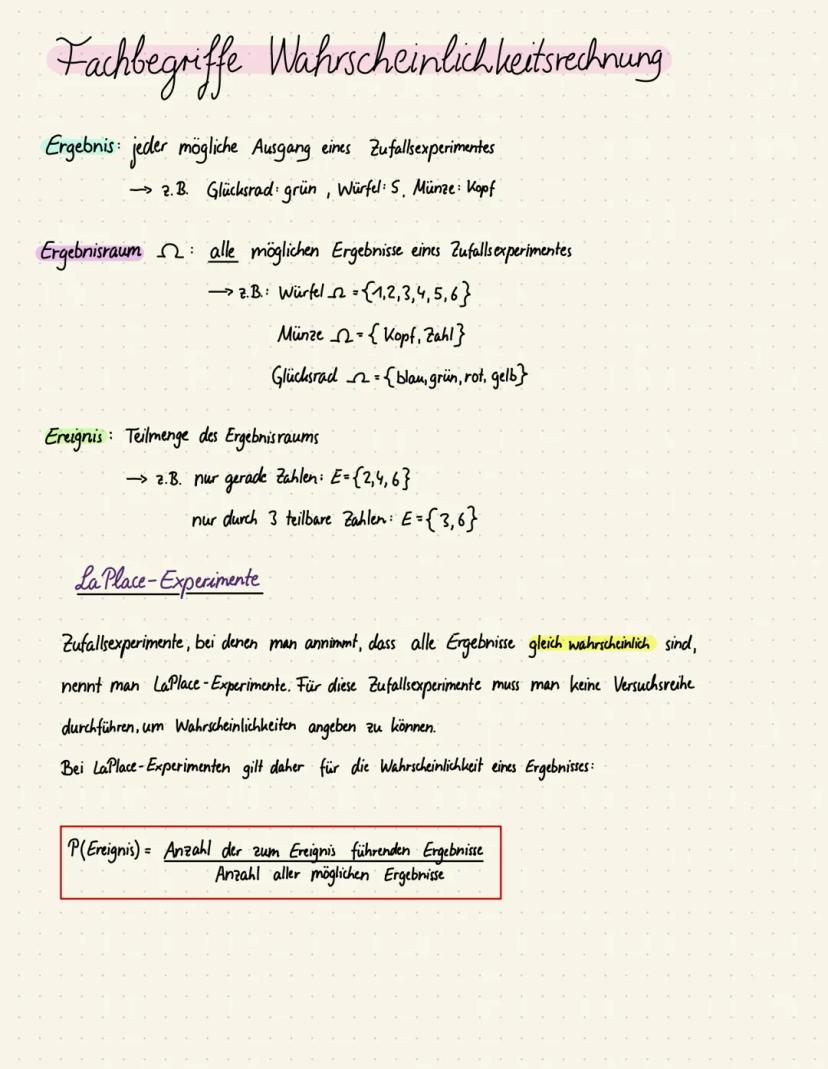 Fachbegriffe Wahrscheinlichkeitsrechnung
Ergebnis: jeder mögliche Ausgang eines Zufallsexperimentes
→ z.B. Glücksrad: grün, Würfel: 5, Münze: Kopf
Ergebnisraum Ω: alle möglichen Ergebnisse eines Zufallsexperimentes
→ z.B.: Würfel Ω = {1,2,3,4,5,6}
Münze Ω = {Kopf, Zahl}
Glücksrad Ω = {blau, grün, rot, gelb}
Ereignis: Teilmenge des Ergebnisraums
→ z.B. nur gerade Zahlen: E={2,4,6}
nur durch 3 teilbare Zahlen: E={3,6}
LaPlace-Experimente
Zufallsexperimente, bei denen man annimmt, dass alle Ergebnisse gleich wahrscheinlich sind,
nennt man LaPlace-Experimente. Für diese Zufallsexperimente muss man keine Versuchsreihe
durchführen, um Wahrscheinlichkeiten angeben zu können.
Bei LaPlace-Experimenten gilt daher für die Wahrscheinlichkeit eines Ergebnisses:
P(Ereignis) = Anzahl der zum Ereignis führenden Ergebnisse
Anzahl aller möglichen Ergebnisse